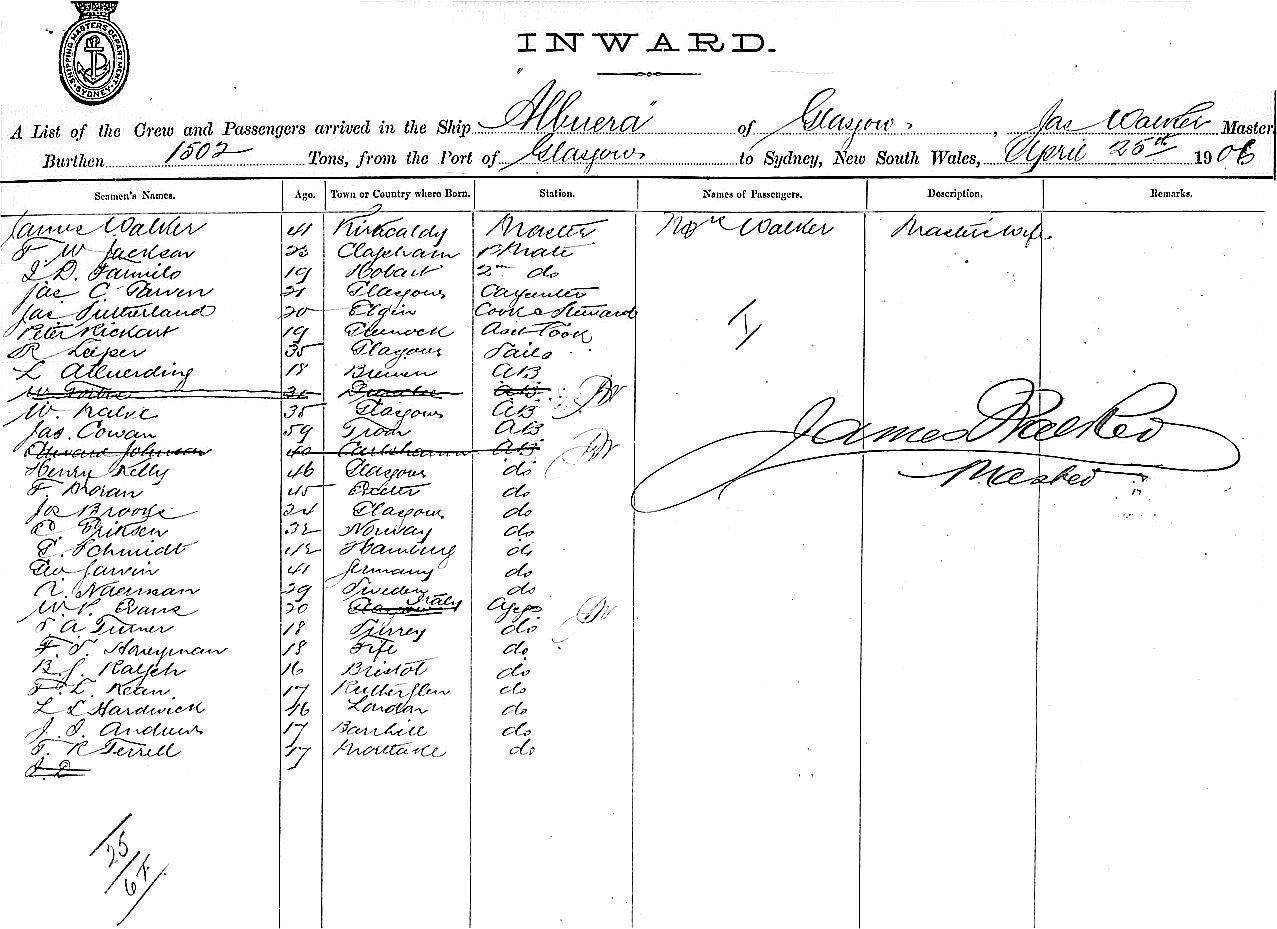 SHIPPING MASTERS DEPARTMENT. SYDNEY.
INWARD.
A List of the Crew and Passengers arrived in the Ship "Albuera" of Glasgow, Jas Walker Master
Burthen 1502 Tons, from the Port of Glasgow to Sydney, New South Wales, April 25th 1906
Seamen's Names. Age. Town or Country where Born. Station. Names of Passengers. Description. Remarks.
James Walker 41 Kirkcaldy Master Walker Master's wife
F. W Jackson 23 Clapham Mate
19 Hobart 2nd do
Jas C. 21 Glasgow Carpenter
Jas Sutherland 20 Elgin Cook & Steward
Peter 19 Asst Cook
R Leeper 35 Glasgow Sails
L 18 Bremen AB
W. AB
W. 35 Glasgow AB
Jas. Cowan 59 Troon AB
Edward Johnson 40 AB
Henry Kelly 46 Glasgow do
F. Moran 45 Exeter do
Jas 24 Glasgow do
Eriksen 32 Norway do
Schmidt 42 Hamburg do
Geo 41 Germany do
29 Sweden do
W. P. Evans 20 Italy
A Turner 18 Surrey do
F. Honeyman 18 Fife do
B. J. Ralph 16 Bristol do
F. L. Kean 17 Rutherglen do
L L Hardwick 16 London do
J. Andrews 17 Barrhill do
T. R Terrell 17 Mortlake do
James Walker
Master
25